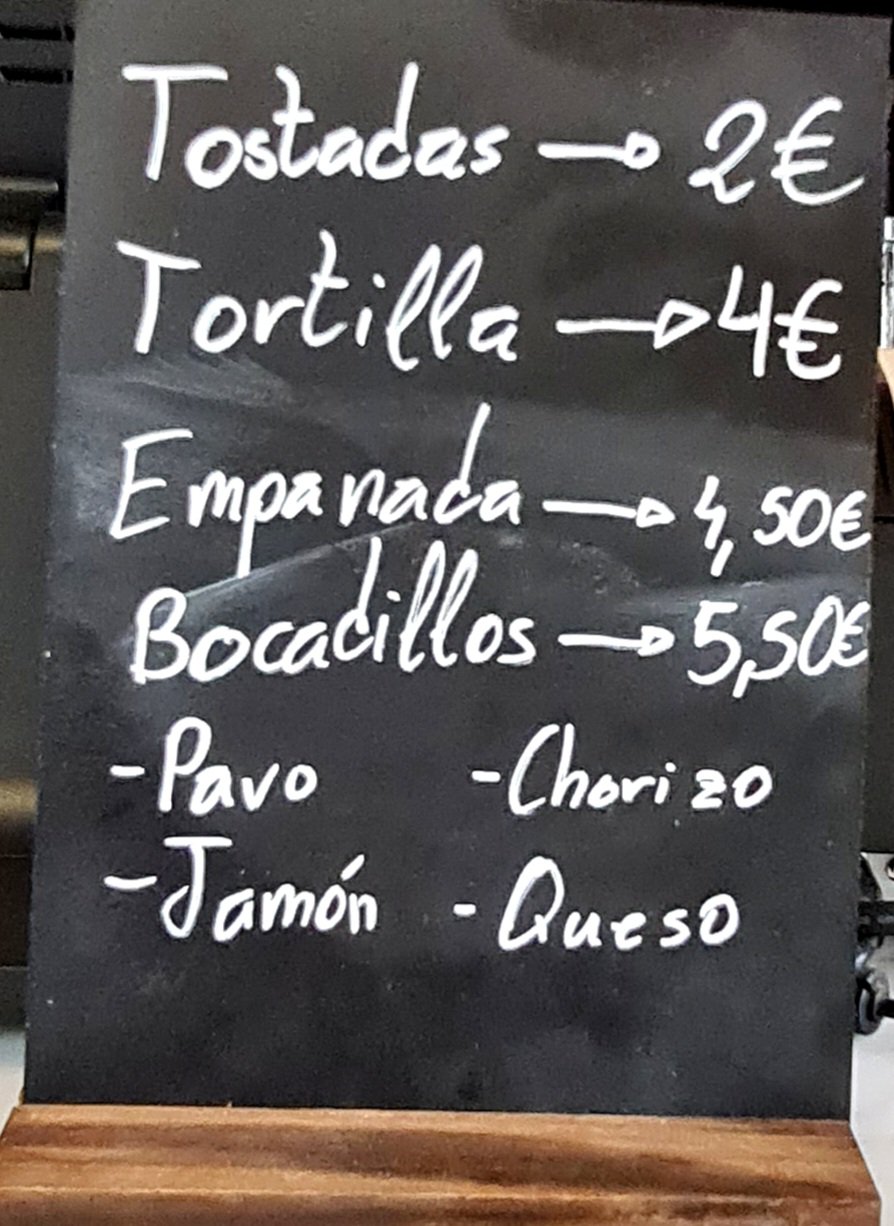 Tostadas → 2€
Tortilla → 4€
Empanada → 4,50€
Bocadillos → 5,50€
- Pavo - Chorizo
- Jamón - Queso